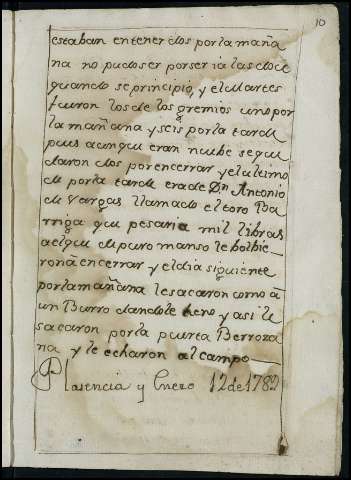 10
estaban entener dos por la maña
na no pudo ser por ser ia las doce
quando se principio, y el Martes
fueron los de los gremios uno por
la mañana y seis por la tarde
pues aunque eran nuebe se que
daron dos por encerrar y el ultimo
de por la tarde era de Dn. Antonio
de Vargas llamado el toro Ba
rriga que pesaria mil libras
aelque de puro manso le bolbie
ron â encerrar y el dia siguiente
por la mañana le sacaron como â
un Burro dandole heno y asi le
sacaron por la puerta Berroza
na y le echaron al campo
Plasencia y Enero 12 de 1782